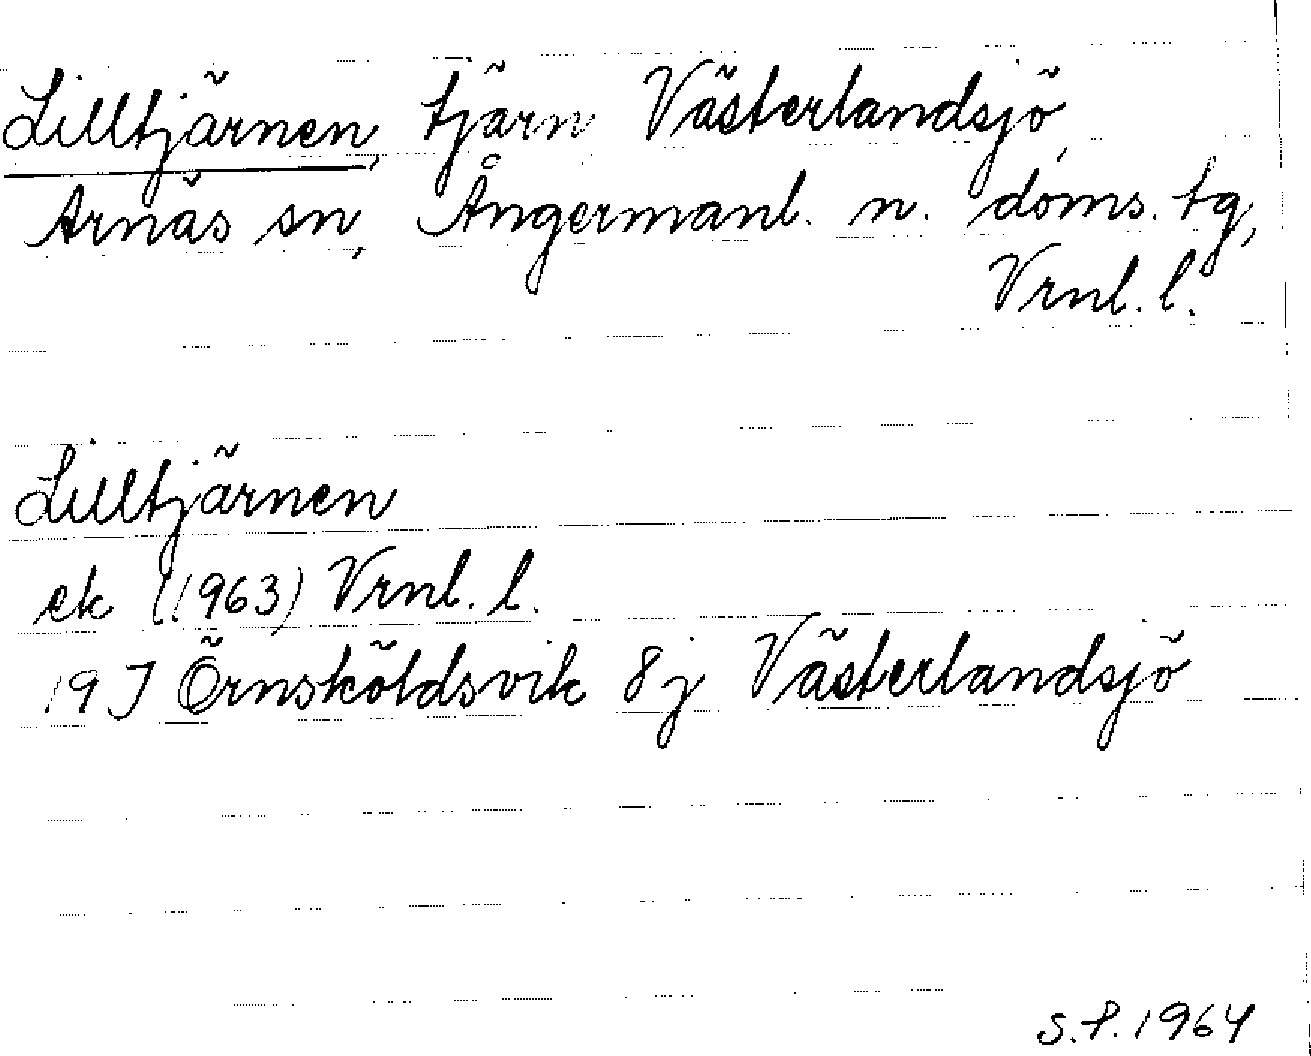 Lilltjärnen, tjärn Västerlandsjö,
Arnäs sn, Ångermanl. n. doms. tg,
Vrnl. l.
Lilltjärnen
ek (1963) Vrnl. l.
19J Örnsköldsvik 8j Västerlandsjö
S.P. 1964